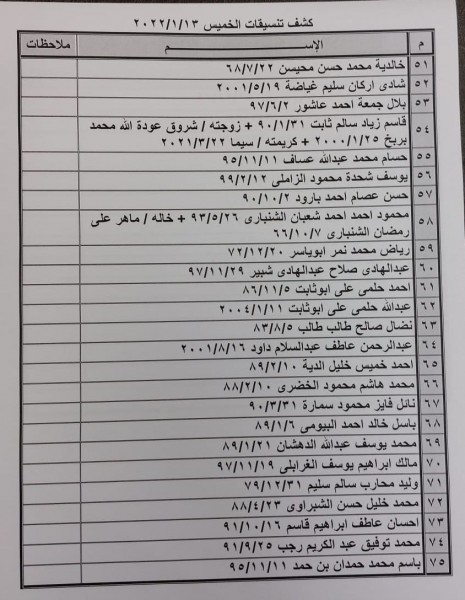 كشف تنسيقات الخميس ٢٠٢٢/١/١٣
م الإســـــم ملاحظات
٥١ خالدية محمد حسن محيسن ٦٨/٧/٢٢
٥٢ شادى اركان سليم غياضة ٢٠٠١/٥/١٩
٥٣ بلال جمعة احمد عاشور ٩٧/٦/٢
٥٤ قاسم زياد سالم ثابت ٩٠/١/٣١ + زوجته / شروق عودة الله محمد
بربخ ٢٠٠٠/١/٢٥ + كريمته / سيما ٢٠٢١/٣/٢٢
٥٥ حسام محمد عبدالله عساف ٩٥/١١/١١
٥٦ يوسف شحدة محمود الزاملى ٩٩/٢/١٢
٥٧ حسن عصام احمد بارود ٩٠/١٠/٢
٥٨ محمود احمد احمد شعبان الشنبارى ٩٣/٥/٢٦ + خاله / ماهر على
رمضان الشنبارى ٦٦/١٠/٧
٥٩ رياض محمد نمر ابوياسر ٧٢/١٢/٢٠
٦٠ عبدالهادى صلاح عبدالهادى شبير ٩٧/١١/٢٩
٦١ احمد حلمى على ابوثابت ٨٦/١١/٥
٦٢ عبدالله حلمى على ابوثابت ٢٠٠٤/١/١١
٦٣ نضال صالح طالب طالب ٨٣/٨/٥
٦٤ عبدالرحمن عاطف عبدالسلام داود ٢٠٠١/٨/١٦
٦٥ احمد خميس خليل الدية ٨٩/٢/١٠
٦٦ محمد هاشم محمود الخضرى ٨٨/٢/١٠
٦٧ نائل فايز محمود سمارة ٩٠/٣/٣١
٦٨ باسل خالد احمد البيومى ٨٩/١/٦
٦٩ محمد يوسف عبدالله الدهشان ٨٩/١/٢١
٧٠ مالك ابراهيم يوسف الغرابلى ٩٧/١١/١٩
٧١ وليد محارب سالم سليم ٧٩/١٢/٣١
٧٢ محمد خليل حسن الشبراوى ٨٨/٤/٢٣
٧٣ احسان عاطف ابراهيم قاسم ٩١/١٠/١٦
٧٤ محمد توفيق عبد الكريم رجب ٩١/٩/٢٥
٧٥ باسم محمد حمدان بن حمد ٩٥/١١/١١